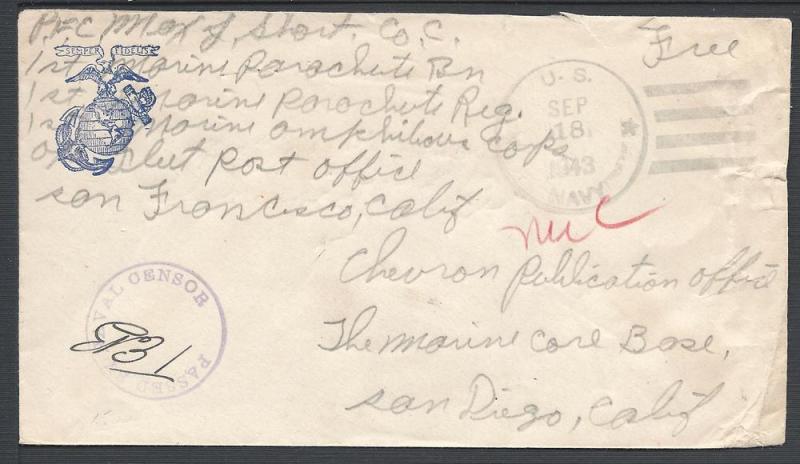 P.F.C Max J. Short. Co. C.
SEMPER FIDELIS
1st marine Parachute Bn
1st marine Parachute Reg.
1st marine amphibious corps
Fleet Post office
San Francisco, Calif
Free
U. S.
SEP
18
1943
NAVY
Chevron Publication office
The marine Core Base,
San Diego, Calif
PASSED NAVAL CENSOR